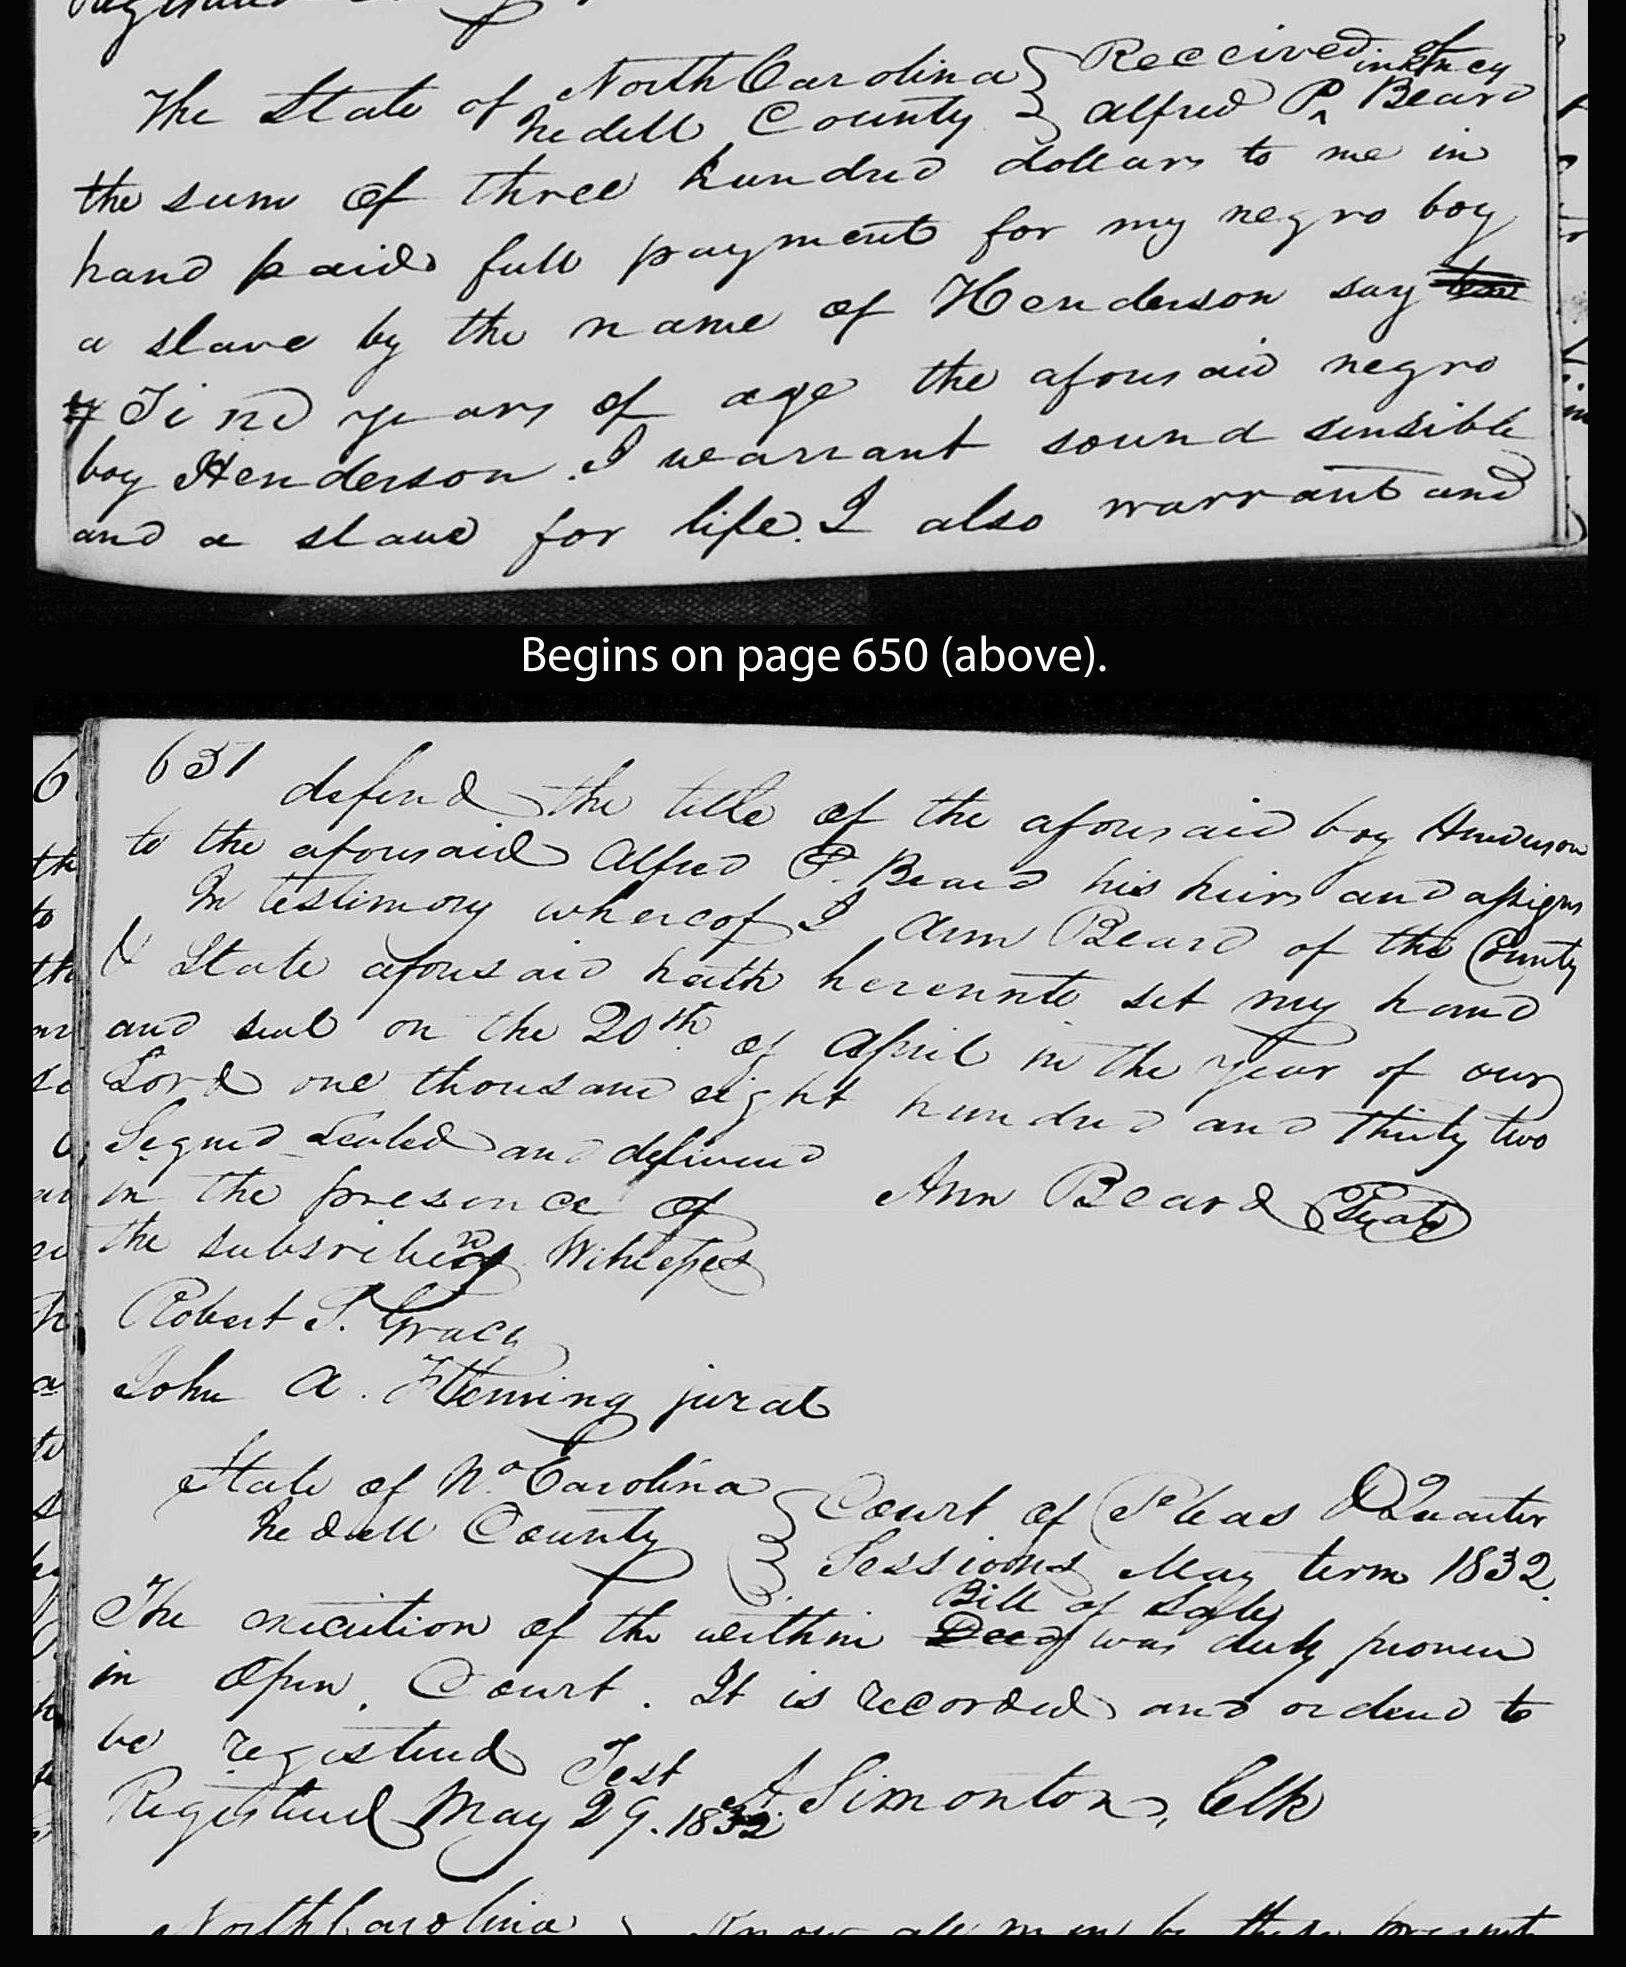 The State of North Carolina } Received of
Iredell County } Alfred P^inkney Beard
the sum of three hundred dollars to me in
hand paid full payment for my negro boy
a slave by the name of Henderson say
years of age the aforesaid negro
boy Henderson. I warrant sound sensible
and a slave for life. I also warrant and
Begins on page 650 (above).
651
defend the title of the aforesaid boy Henderson
to the aforesaid Alfred P. Beard his heirs and assigns
In testimony whereof I Ann Beard of the County
& State aforesaid hath hereunto set my hand
and seal on the 20th of April in the year of our
Lord one thousand eight hundred and thirty two
Signed Sealed and delivered
in the presence of Ann Beard Seal
the subsribeing Witnesses
Robert S. Gracy
John A. Fleming jurat
State of No. Carolina } Court of Pleas & Quarter
Iredell County } Sessions May term 1832.
Bill of Sale
The execution of the within Deed was duly proven
in Open Court. It is recorded and ordered to
be registered Test
A Simonton, Clk
Registered May 29. 1832.
North Carolina } Know all men by these presents